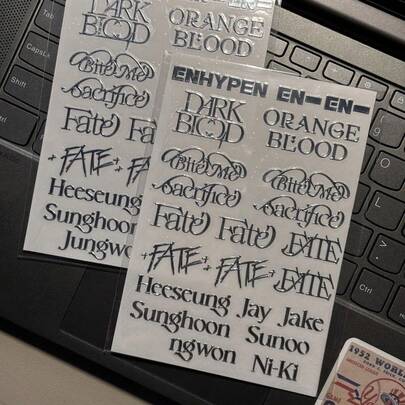 Tab
CapsLk
Shift
Ctrl
DARK
BLOOD
ORANGE
BLOOD
Bite Me
Sacrifice
Fate
FATE
Heeseung
Sunghoon
Jungwo
ENHYPEN EN- EN-
DARK
BLOOD
ORANGE
BLOOD
Bite Me Bite Me
Sacrifice Sacrifice
Fate Fate FATE
FATE FATE FATE
Heeseung Jay Jake
Sunghoon Sunoo
ngwon Ni-Ki
Ctrl
1952 WORL